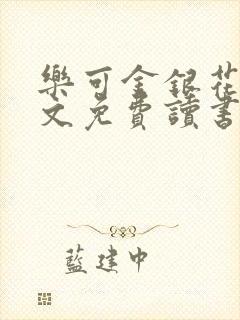 樂可金銀花
文免費讀書
藍建中